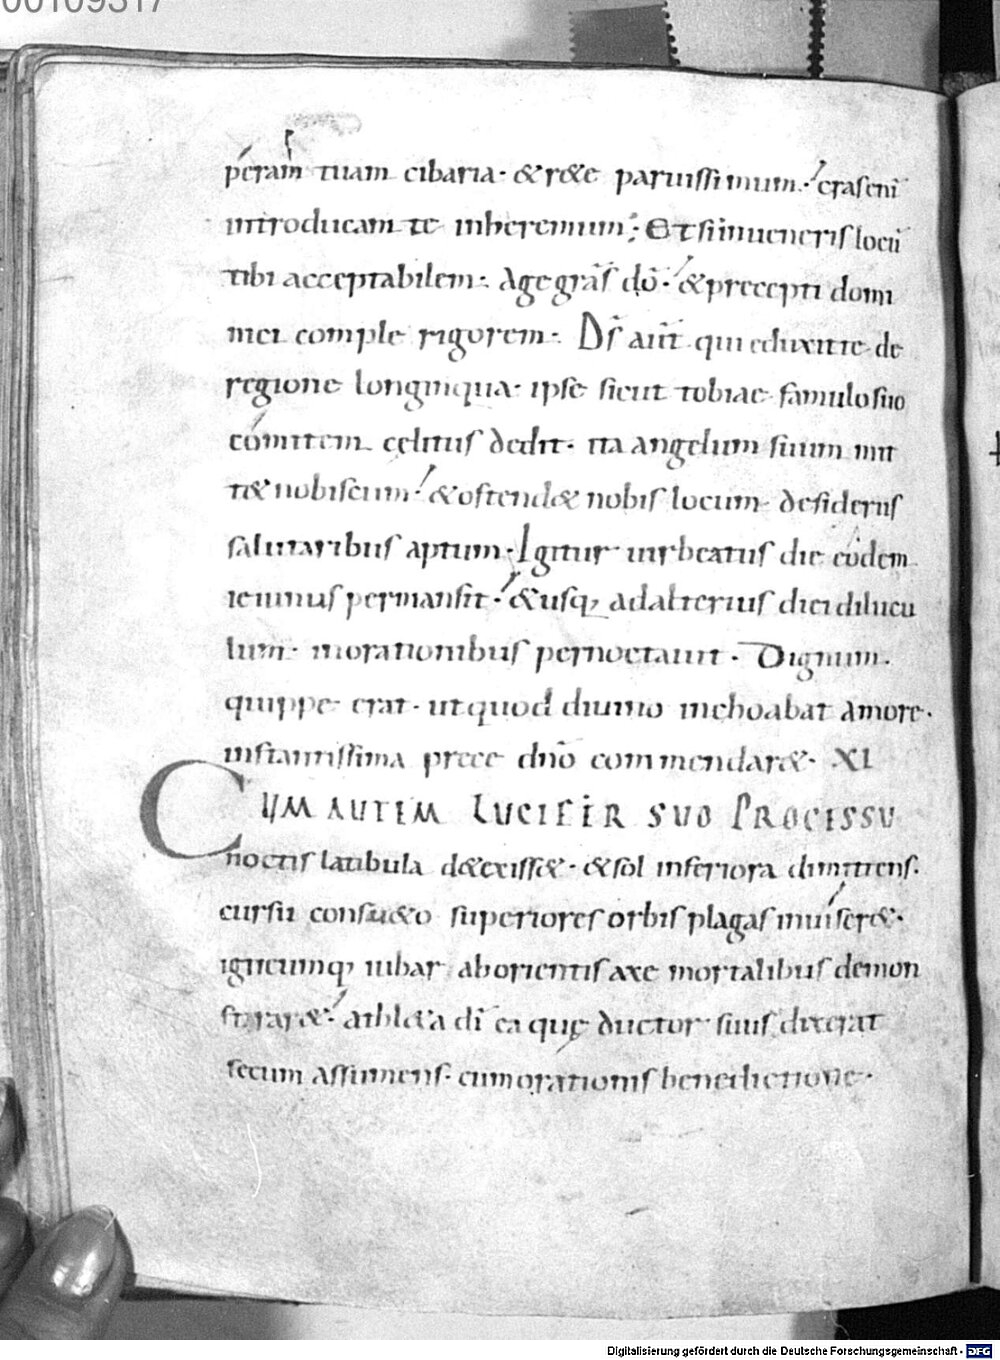 00109317
péram tuam cibaria· &r&e paruissimum·' crasenı̄
introducam te inheremum; Et siinueneris locū
tibi acceptabilem· Age grās dō·' & precepti domi
mei comple rigorem· Ds̄ aūt qui eduxitte de
regione longinqua· ipse sicut tobiae famulo suo
cómitem cęlitus dedit· ita angelum suum mit
t& nobiscum·' & ostend& nobis locum desideriis
salutaribus aptum· Igitur uir beatus die eodem
ieiunus permansit·' & usq; adalterius diei dilucu
lum· inorationibus pernoctauit· Dignum
quippe erat· ut quod diuino inchoabat amore·
instantissima prece dnō commendar&· XI
CUM AUTEM LUCIFER SUO PROCESSU
noctis latibula d&exiss&· & sol inferiora dimittens·
cursu consu&o superiores orbis plagas inuiser&·
igneumq; iubar aborientis axe mortalibus demon
strar&·' athl&a dı̄ ea quę ductor suus dixerat
secum assumens· cum orationis benedictione·
Digitalisierung gefördert durch die Deutsche Forschungsgemeinschaft - DFG